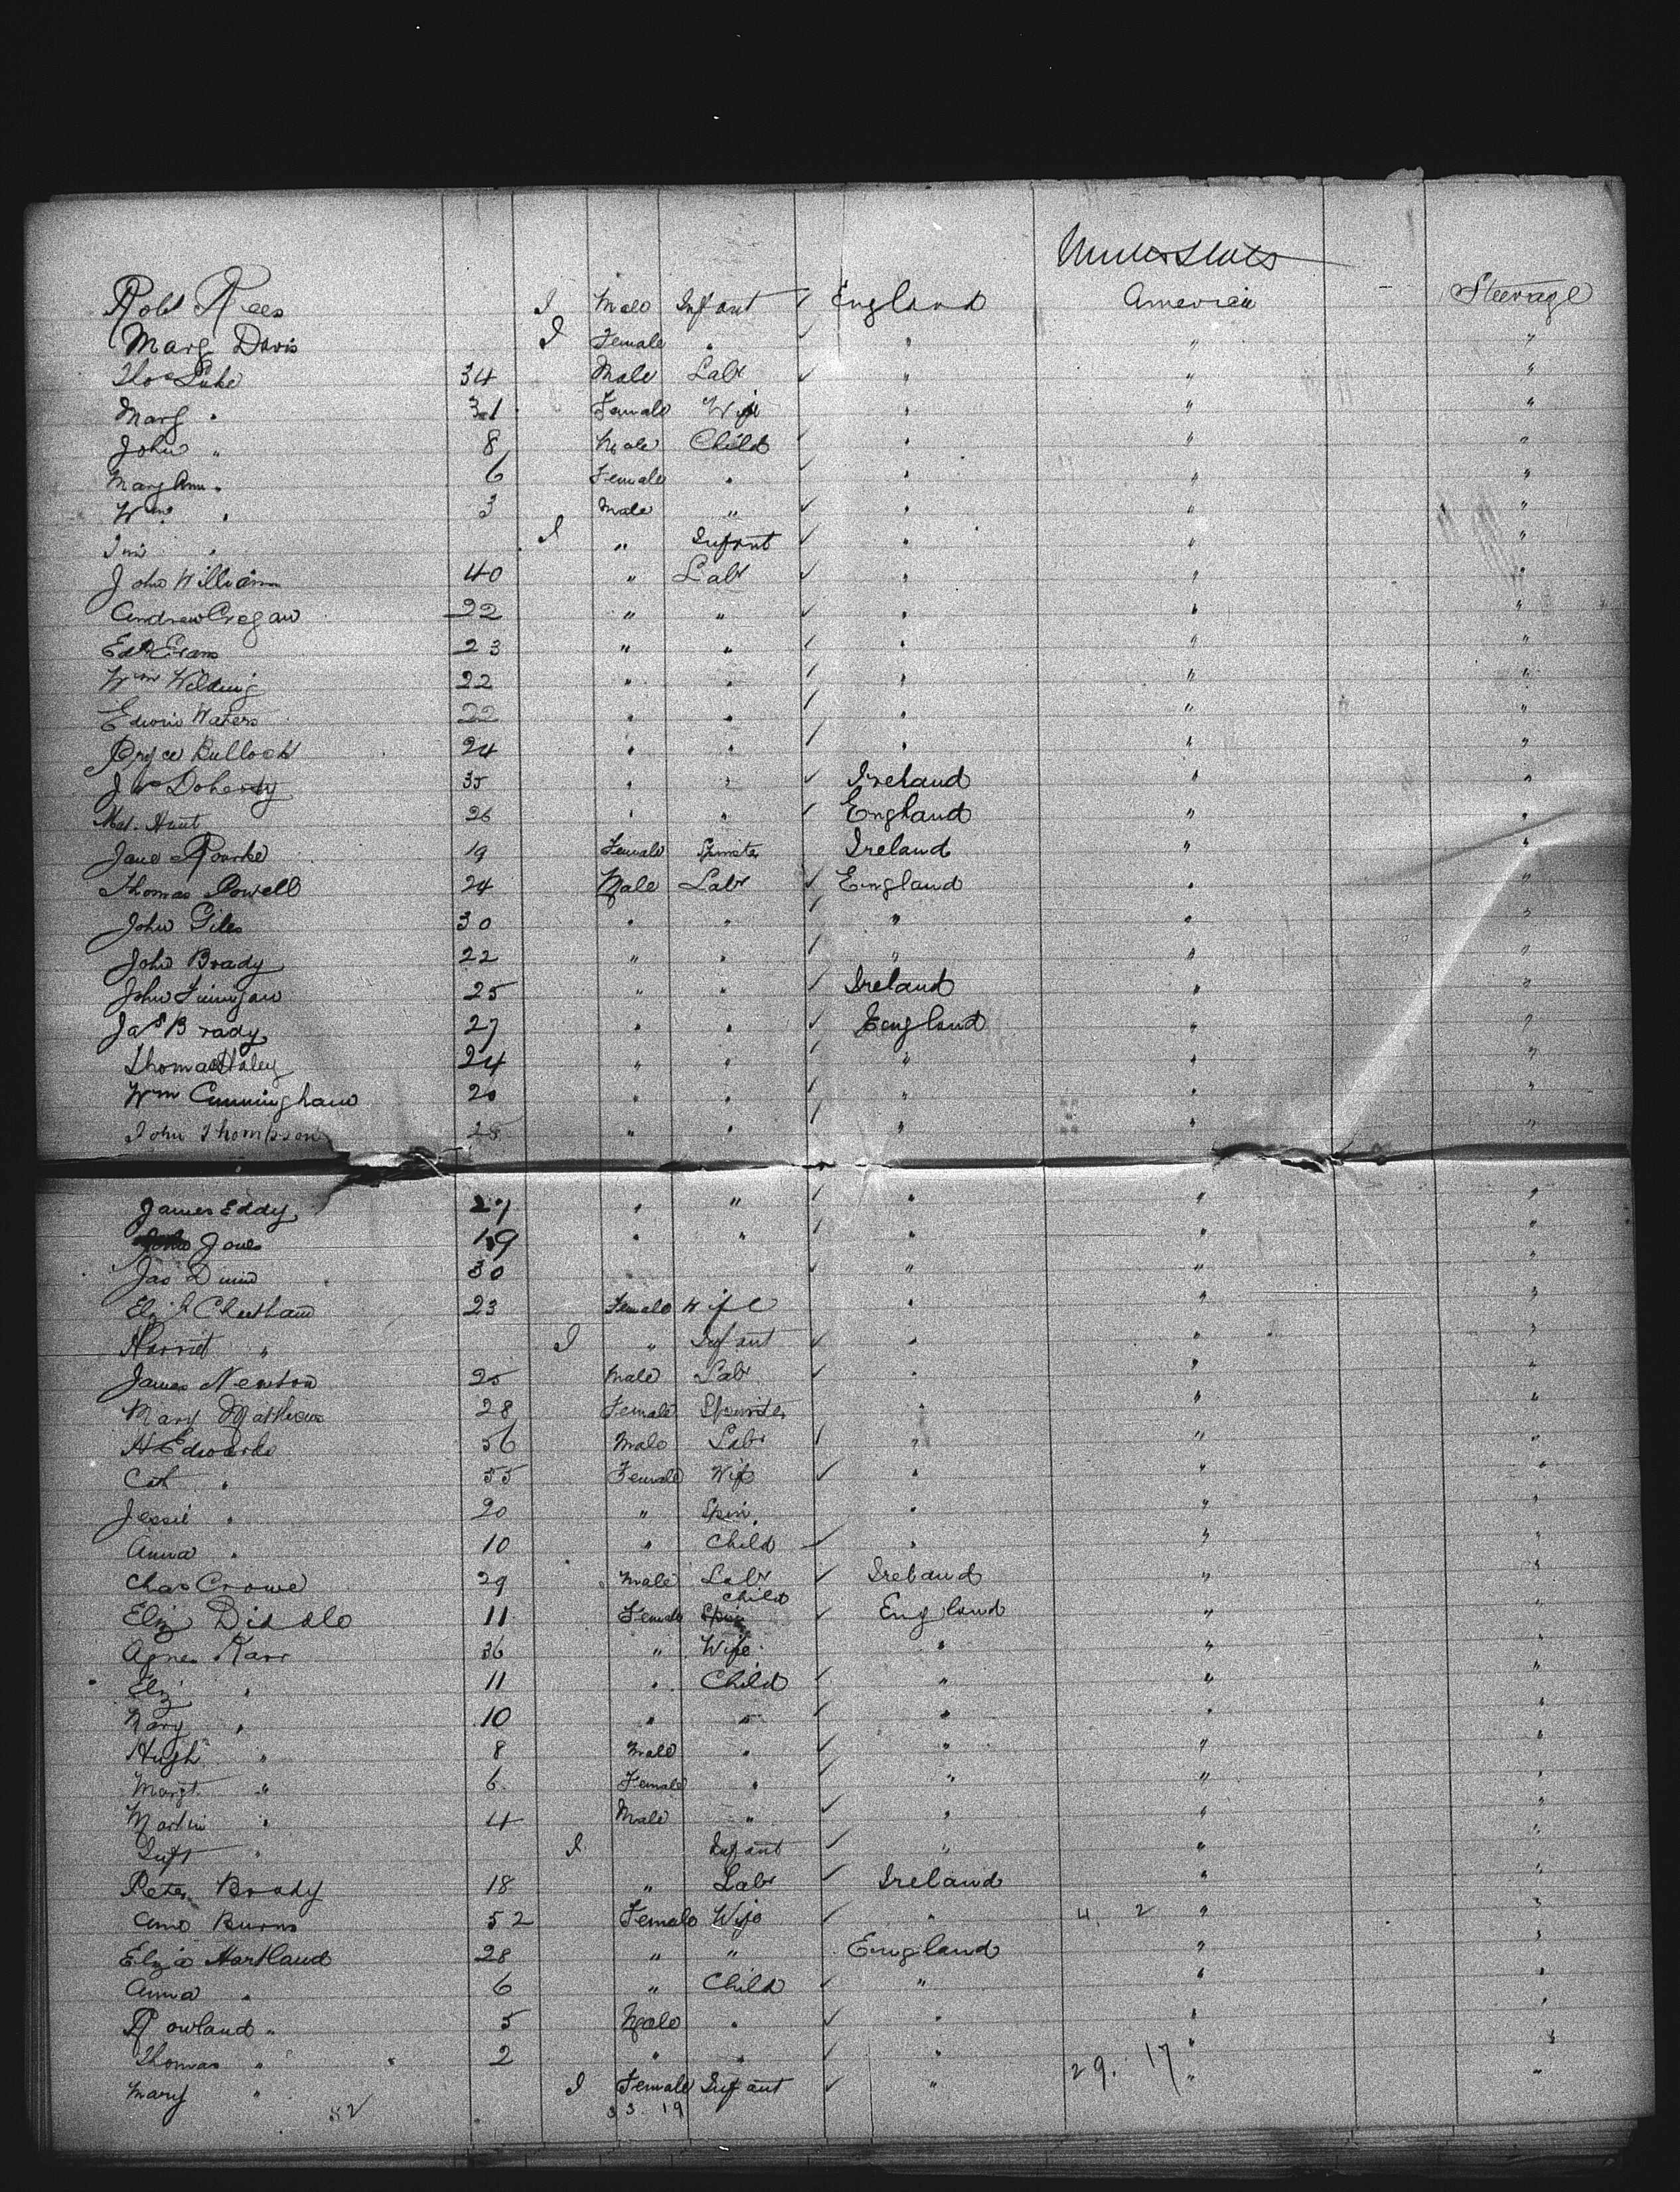 United States
Robt Rees I Male Infant ✓ England America Steerage
Marg Davis I Female " ✓ " " "
Thos Luke 34 Male Labr ✓ " " "
Marg " 31 Female Wife " " "
John " 8 Male Child ✓ " " "
Mary Ann " 6 Female " ✓ " " "
Wm " 3 Male " ✓ " " "
" I " Infant ✓ " " "
John William 40 " Labr ✓ " " "
Andrew Cregan 22 " " ✓ " " "
Edw Evans 23 " " ✓ " " "
Wm Wilding 22 " " ✓ " " "
Edwin Waters 22 " " ✓ " " "
Bryce Bulloch 24 " " ✓ " " "
Doherty 35 " " ✓ Ireland " "
Hunt 26 " " ✓ England " "
Jane Rourke 19 Female Spinster Ireland " "
Thomas Powell 24 Male Labr ✓ England " "
John Giles 30 " " ✓ " " "
John Brady 22 " " ✓ " " "
John Finnigan 25 " " ✓ Ireland " "
Jas Brady 27 " " ✓ England " "
Thomas Haley 24 " " ✓ " " "
Wm Cunningham 20 " " ✓ " " "
John Thompson 28 " " ✓ " " "
James Eddy 27 " " ✓ " " "
Jones 19 " " ✓ " " "
Jas 30 ✓ " " "
Elizh Cheetham 23 Female Wife " " "
Harriet " I " Infant ✓ " " "
James Newton 25 Male Labr ✓ " " "
Mary Mathews 28 Female Spinster " " "
H Edwards 56 Male Labr ✓ " " "
Cath " 55 Female Wife ✓ " " "
Jessie " 20 " Spin. " " "
Anna " 10 " Child ✓ " " "
Chas Crowe 29 Male Labr ✓ Ireland " "
Child
Eliz 11 Female Spin ✓ England " "
Agnes Karr 36 " Wife " " "
Eliz " 11 " Child ✓ " " "
Mary " 10 " " ✓ " " "
Hugh " 8 Male " ✓ " " "
Margt " 6 Female " ✓ " " "
Martin " 4 Male " ✓ " " "
Inft " I Infant ✓ " " "
Peter Brody 18 " Labr ✓ Ireland " "
Ann Burns 52 Female Wife ✓ " 4. 2 " "
Eliza Hartland 28 " " England " "
Anna " 6 " Child ✓ " " "
Rowland " 5 Male " ✓ " " "
Thomas " 2 " " ✓ " " "
Mary " I Female Infant ✓ " 29. 17 " "
52 33. 19